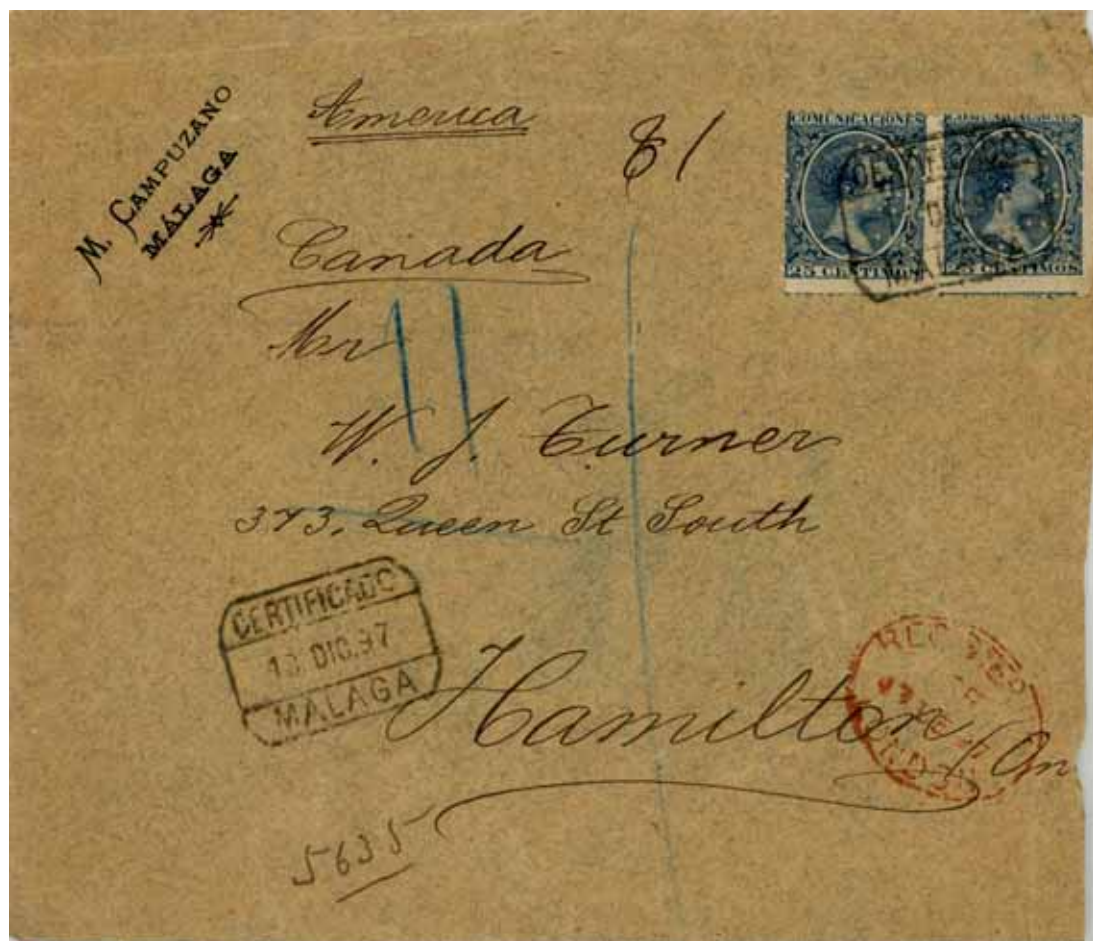 M. CAMPUZANO
MÁLAGA
America
81
COMUNICACIONES COMUNICACIONES
25 CENTIMOS 25 CENTIMOS
Canada
Mr
W. J. Turner
373, Queen St South
CERTIFICADO
13 DIC. 97
MALAGA
Hamilton, On
5635